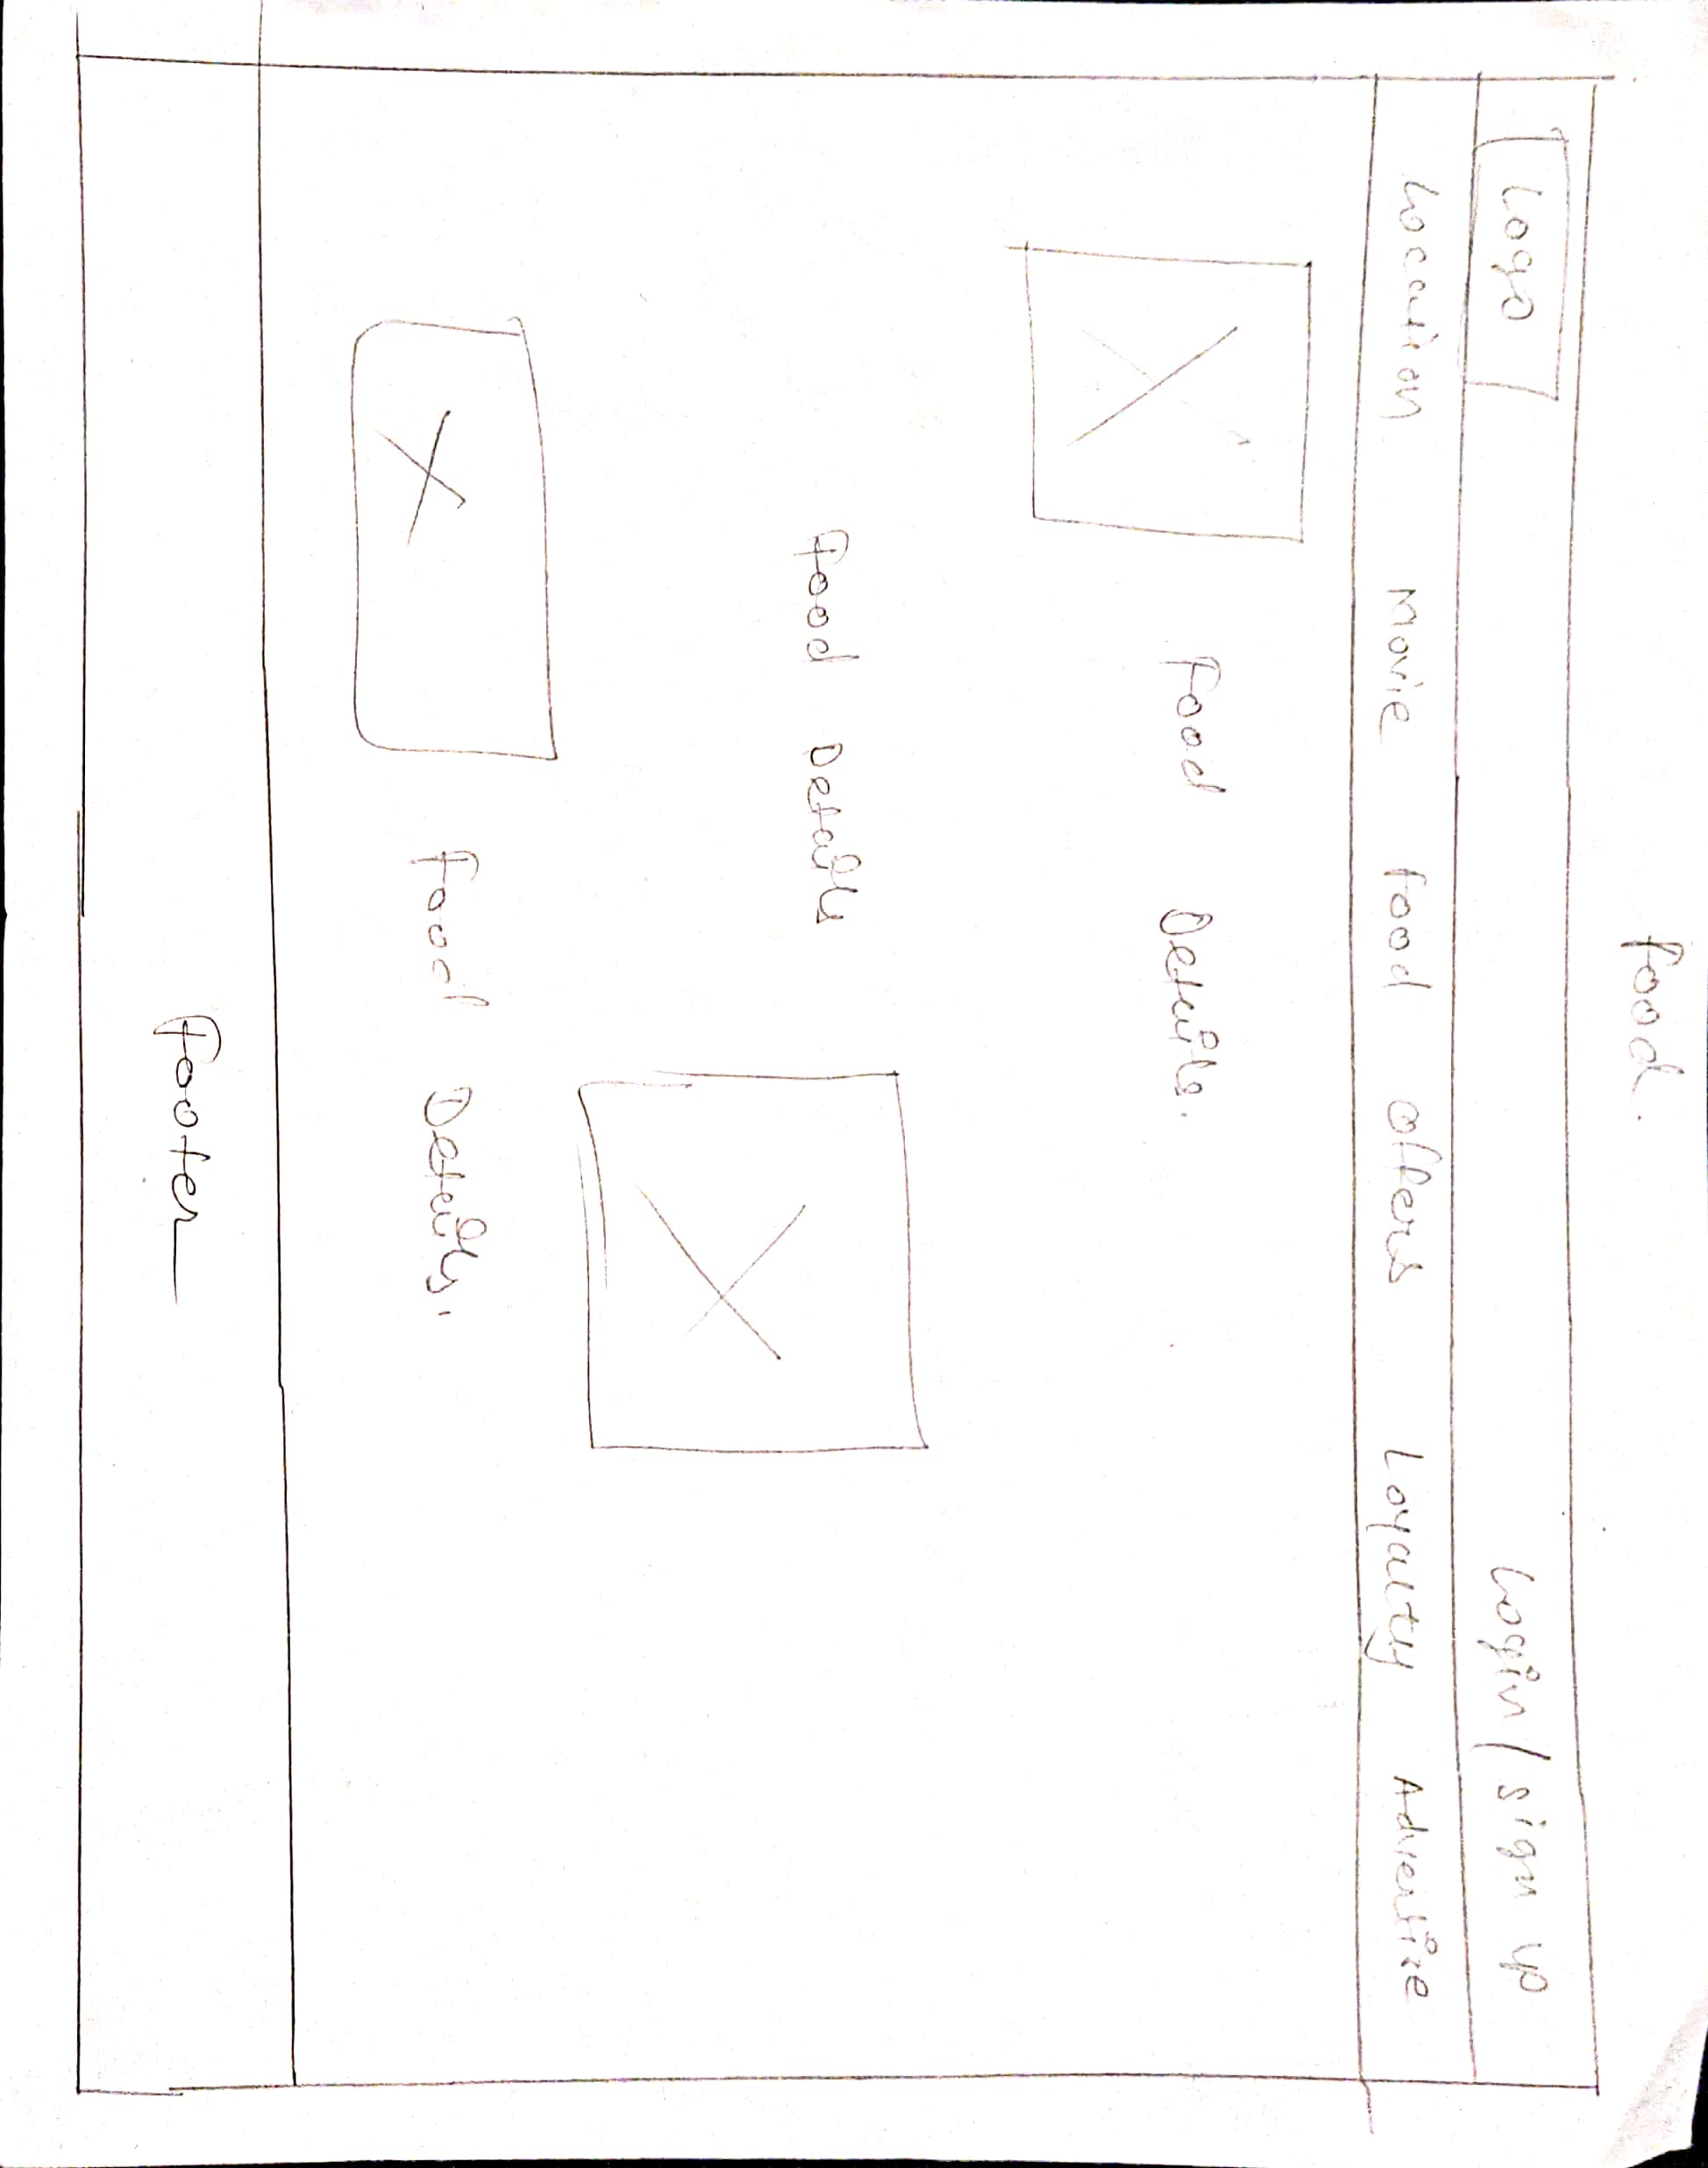 Food.
Logo Login / sign up
Location Movie food offers Loyalty Advertize
Food Details.
Food Details
Food Details.
Footer